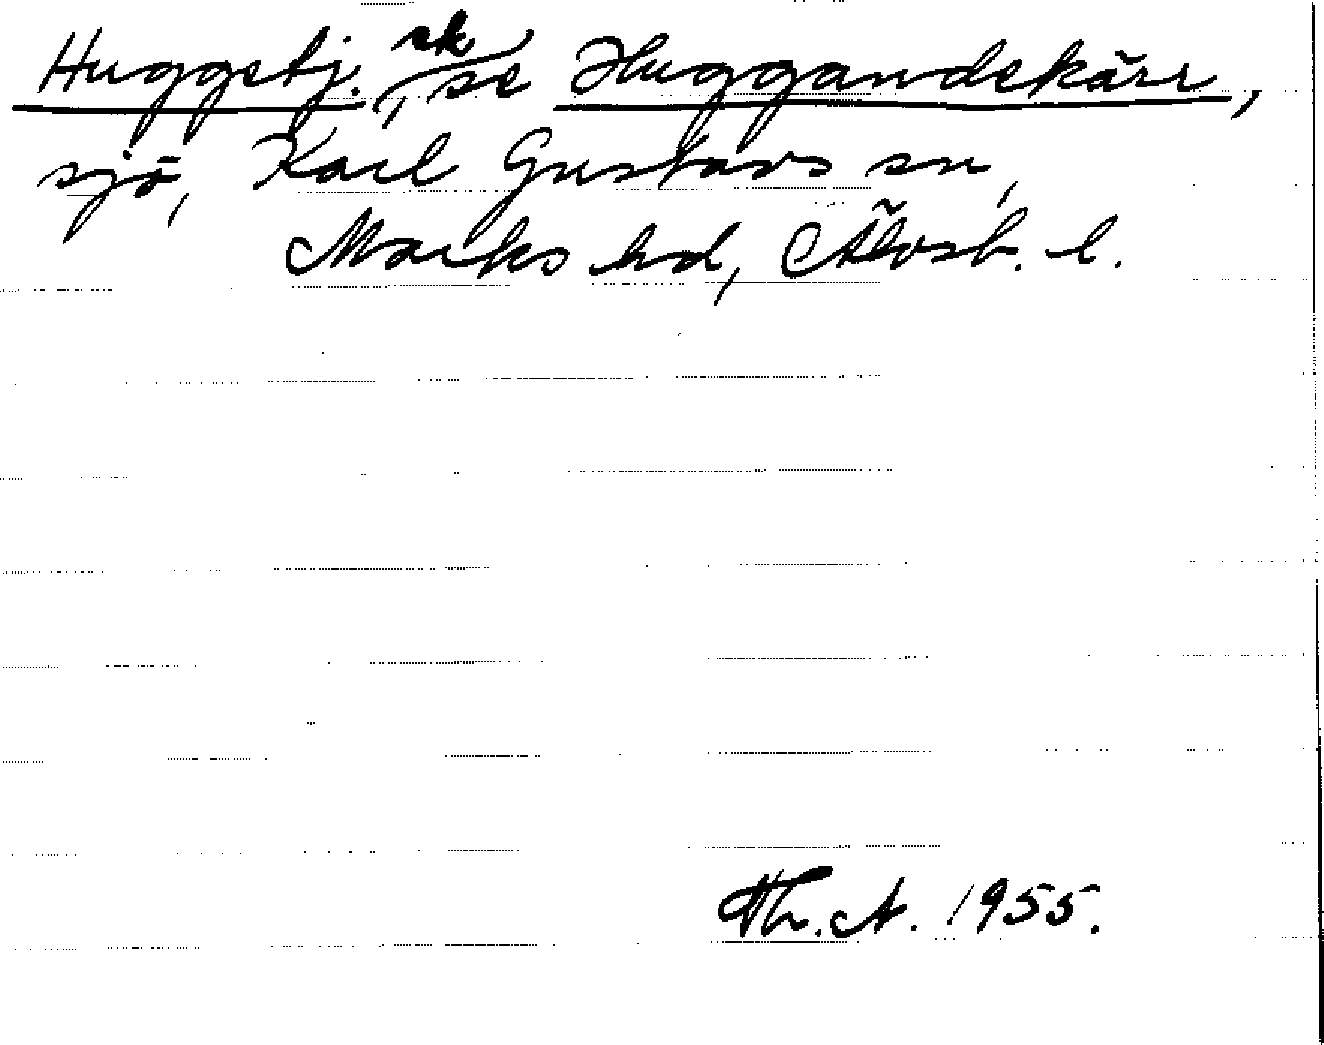 Huggetj. sk, se Huggandekärr,
sjö, Karl Gustavs sn,
Marks hd, Älvsb. l.
Th. A. 1955.